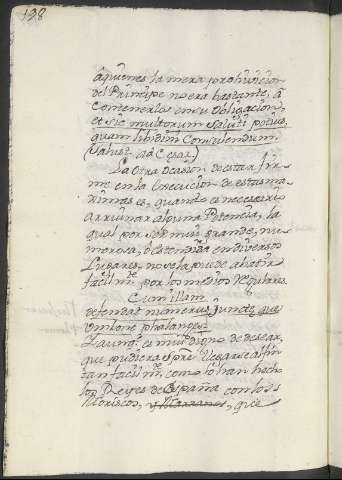 138
âquienes la mera prohiuicion
del Principe no era bastante, â
Contenerlos en su Obligacion,
et sic multorum saluti potius,
quam libidini Consulendum
(Salust. ad Cesar.)
La Otra Ocasion de estar fir-
me en la Execucion de estas ma-
ximas es, quando es necessario
arruinar alguna Potencia, la
qual por ser mui grande, nu-
merosa, ô extendida en diuersos
Lugares, no se la puede abatir
facilmte. por los medios Regulares.
Cum illam
defendat numerus, Junctæ que
Umbone phalanges.
Y aunqe. es mui digno de desear,
que pudiera spre. llegarse al fin
tan facilmte. como lo han hecho
los Reyes de España con los
Moriscos, y Marranos, que